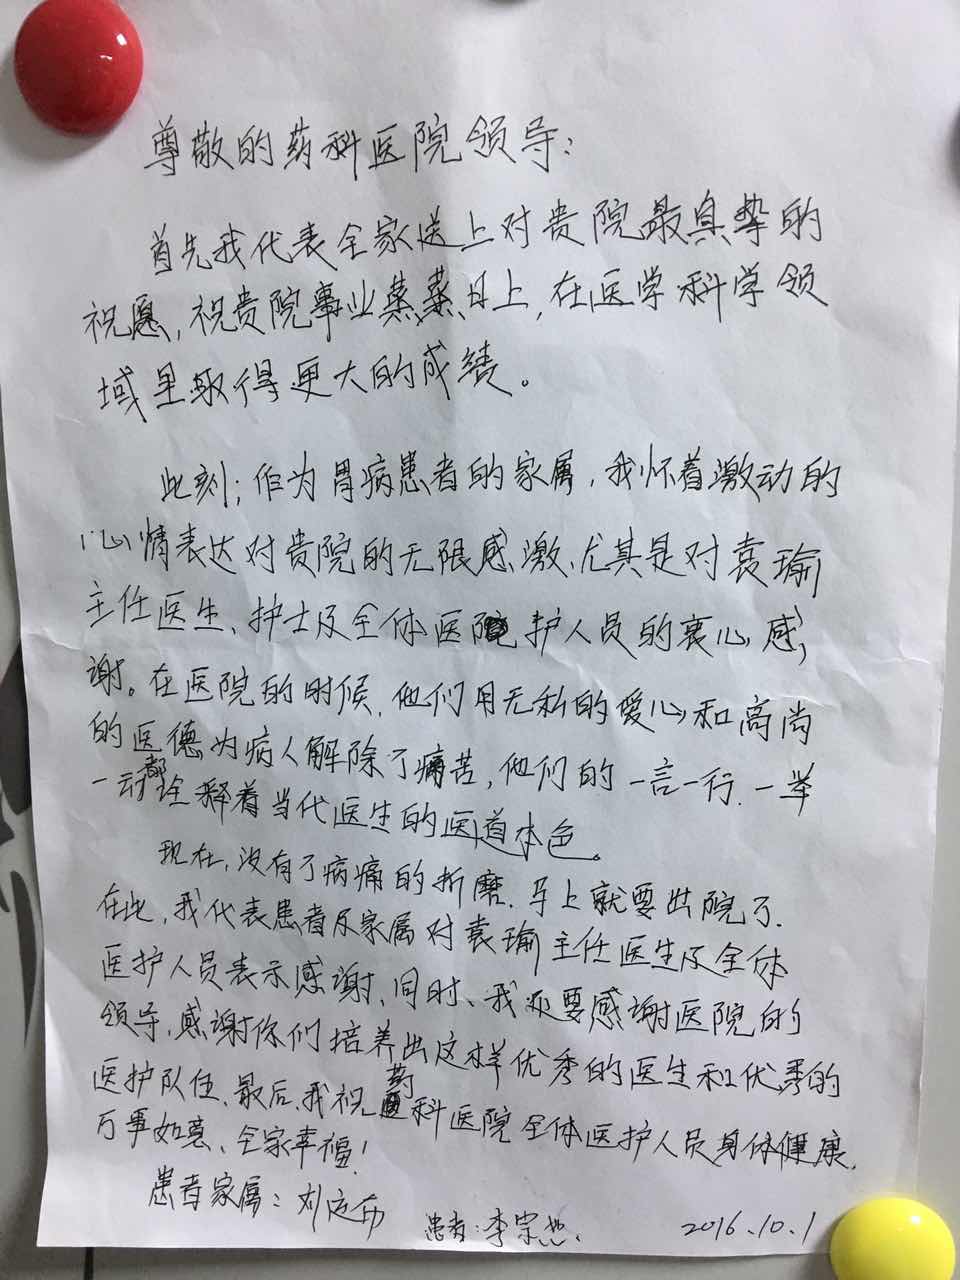 尊敬的药科医院领导：
首先我代表全家送上对贵院最真挚的
祝愿，祝贵院事业蒸蒸日上，在医学科学领
域里取得更大的成绩。
此刻；作为胃病患者的家属，我怀着激动的
心情表达对贵院的无限感激、尤其是对袁瑜
主任医生、护士及全体医护人员的衷心感
谢。在医院的时候，他们用无私的爱心和高尚
的医德为病人解除了痛苦，他们的一言一行、一举
一动都诠释着当代医生的医道本色。
现在，没有了病痛的折磨、马上就要出院了、
在此，我代表患者及家属对袁瑜主任医生及全体
医护人员表示感谢、同时、我还要感谢医院的
领导，感谢你们培养出这样优秀的医生和优秀的
医护队伍、最后、我祝药科医院全体医护人员身体健康、
万事如意、全家幸福！
患者家属：刘
患者：李宗
2016.10.1